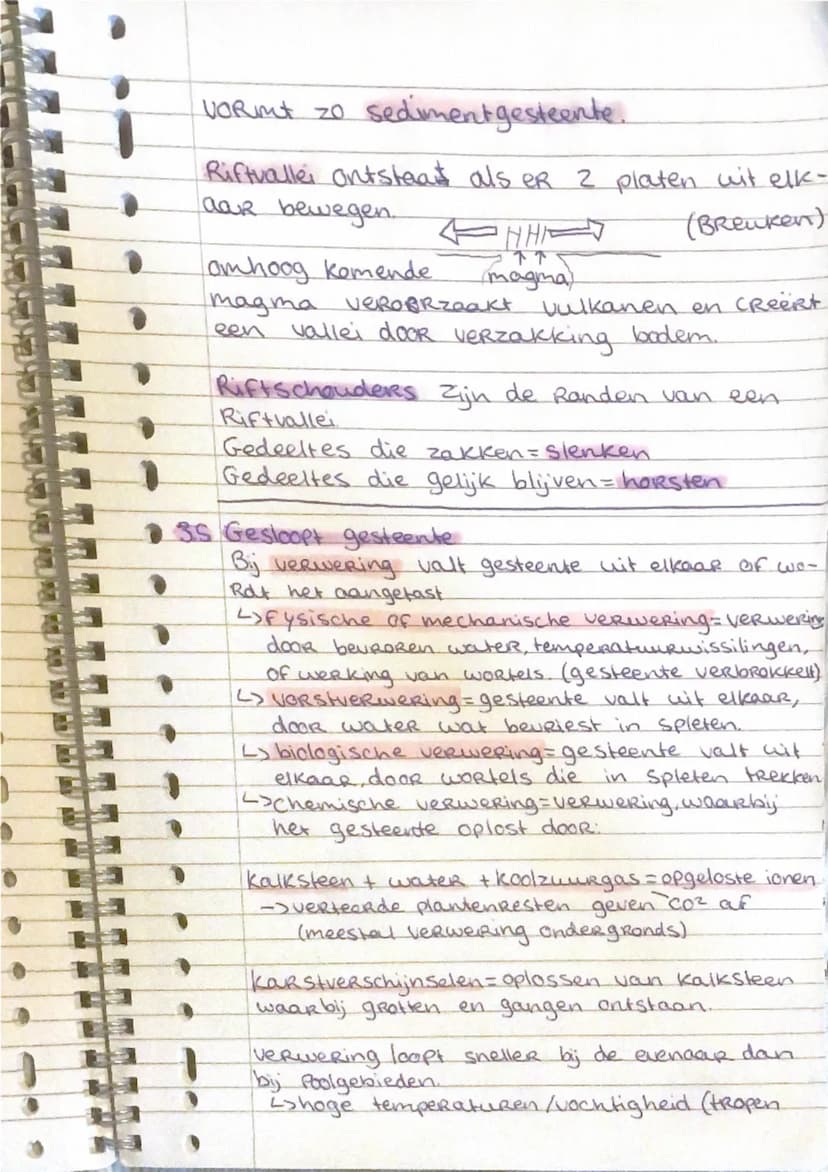 vormt zo sedimentgesteente.
Riftvallei ontstaat als er 2 platen uit elk-
aar bewegen.
(Breuken)
omhoog komende
(magma)
magma veroorzaakt vulkanen en creëert
een vallei door verzakking bodem.
Riftschouders zijn de randen van een
Riftvallei
Gedeeltes die zakken = slenken
Gedeeltes die gelijk blijven = horsten
35 Gesloopt gesteente
Bij verwering valt gesteente uit elkaar of wo-
rdt het aangetast
↳ fysische of mechanische verwering = verwering
door bevroren water, temperatuurwissilingen,
of werking van wortels. (gesteente verbrokkelt)
↳ vorstverwering = gesteente valt uit elkaar,
door water wat bevriest in spleten.
↳ biologische verwering = gesteente valt uit
elkaar, door wortels die in spleten trekken
↳ chemische verwering = verwering, waarbij
het gesteente oplost door:
kalksteen + water + koolzuurgas = opgeloste ionen
→ verteerde plantenresten geven CO² af
(meestal verwering ondergronds)
karstverschijnselen = oplossen van kalksteen
waarbij grotten en gangen ontstaan.
verwering loopt sneller bij de evenaar dan
bij poolgebieden.
↳ hoge temperaturen/vochtigheid (tropen